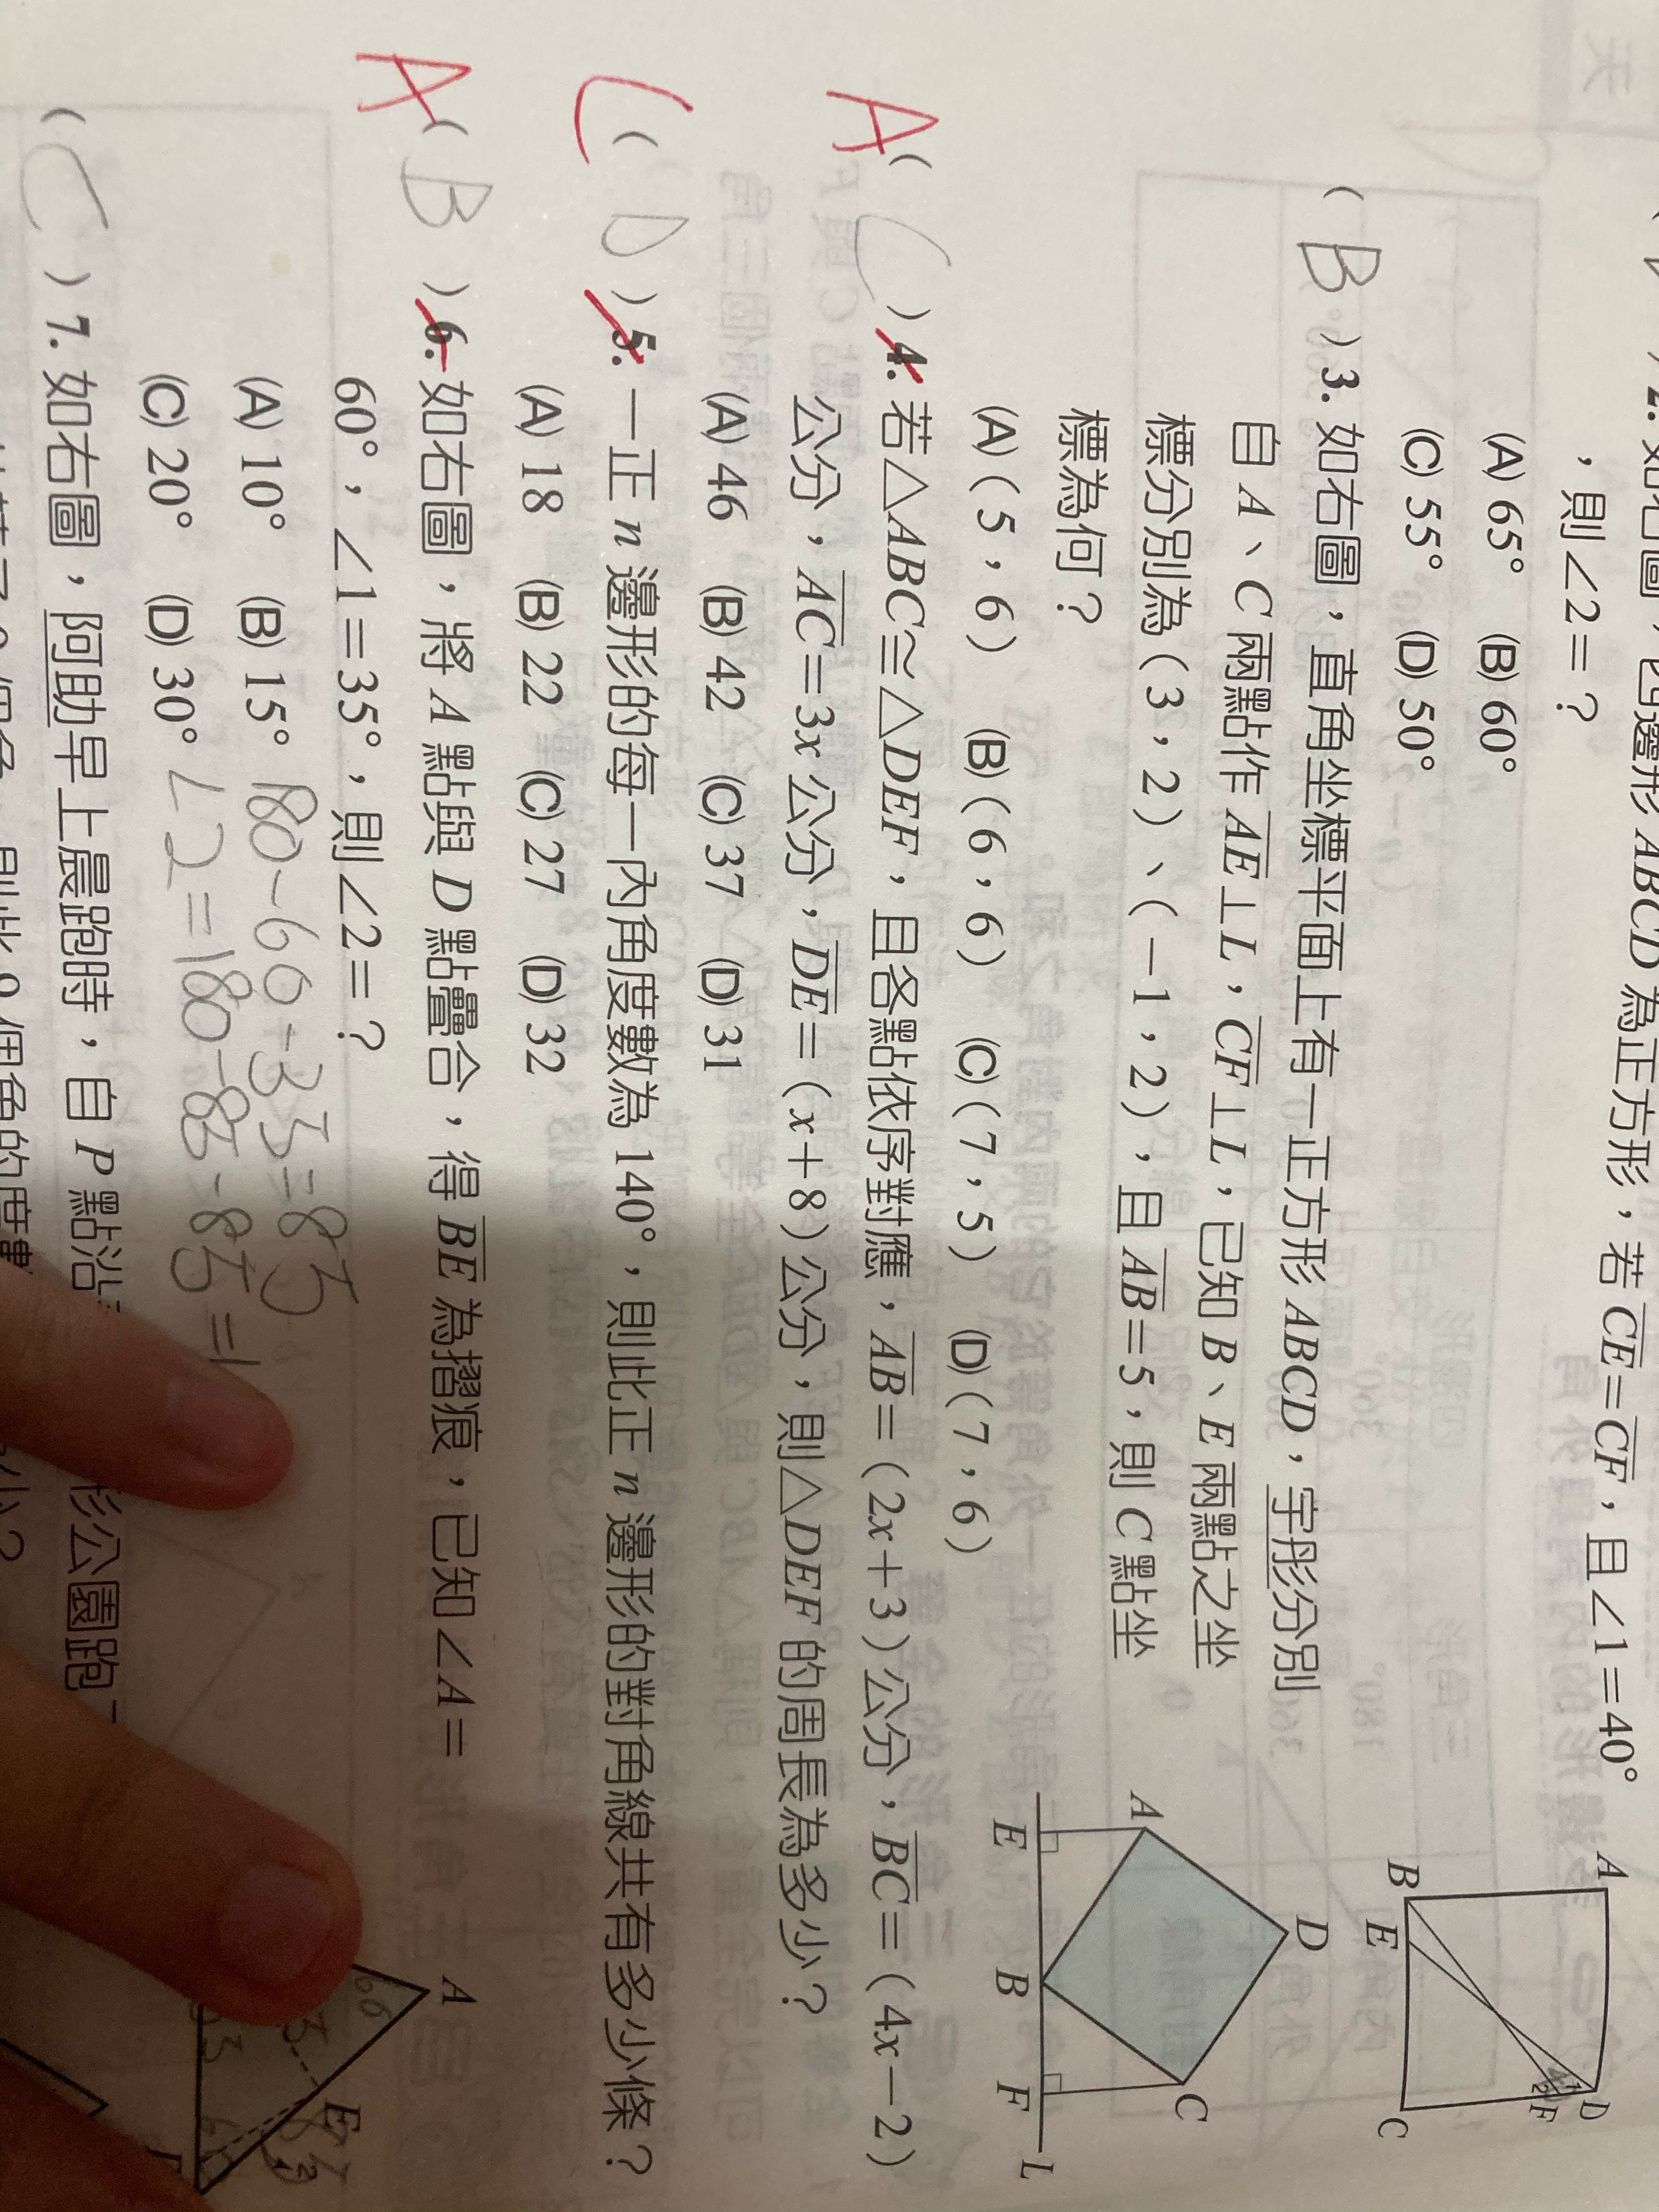 2. 如右圖，四邊形 ABCD 為正方形，若 CE＝CF，且∠1＝40°
，則∠2＝？
(A) 65° (B) 60°
(C) 55° (D) 50°
A
D
1
2
F
B
E
C
( B ) 3. 如右圖，直角坐標平面上有一正方形 ABCD，宇彤分別
自 A、C 兩點作 AE⊥L，CF⊥L，已知 B、E 兩點之坐
標分別為（3，2）、（－1，2），且 AB＝5，則 C 點坐
標為何？
(A)（5，6） (B)（6，6） (C)（7，5） (D)（7，6）
D
A
C
E
B
F
L
A ( C ) 4. 若△ABC≅△DEF，且各點依序對應，AB＝（2x＋3）公分，BC＝（4x－2）
公分，AC＝3x 公分，DE＝（x＋8）公分，則△DEF 的周長為多少？
(A) 46 (B) 42 (C) 37 (D) 31
C ( D ) 5. 一正 n 邊形的每一內角度數為 140°，則此正 n 邊形的對角線共有多少條？
(A) 18 (B) 22 (C) 27 (D) 32
A ( B ) 6. 如右圖，將 A 點與 D 點疊合，得 BE 為摺痕，已知∠A＝
60°，∠1＝35°，則∠2＝？
(A) 10° (B) 15° 180-60-35=85
(C) 20° (D) 30° ∠2=180-85-85=
A
60
E
85
2
( C ) 7. 如右圖，阿助早上晨跑時，自 P 點沿
形公園跑